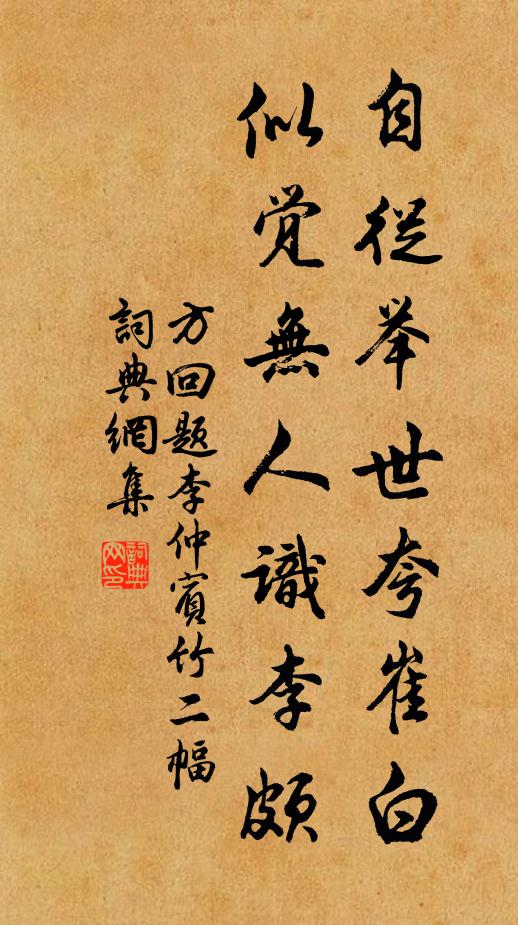 自從举世夸崔白
似覺無人識李頗
方回題李仲賓竹二幅
詞典網集
詞典网印